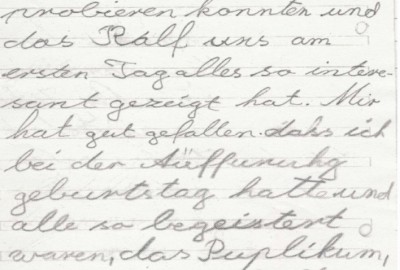 probieren konnten und
das Ralf uns am
ersten Tag alles so intere-
sant gezeigt hat. Mir
hat gut gefallen. dahs ich
bei der Aüffuruhg
geburtstag hatte und
alle so begeistert
waren, das Puplikum,